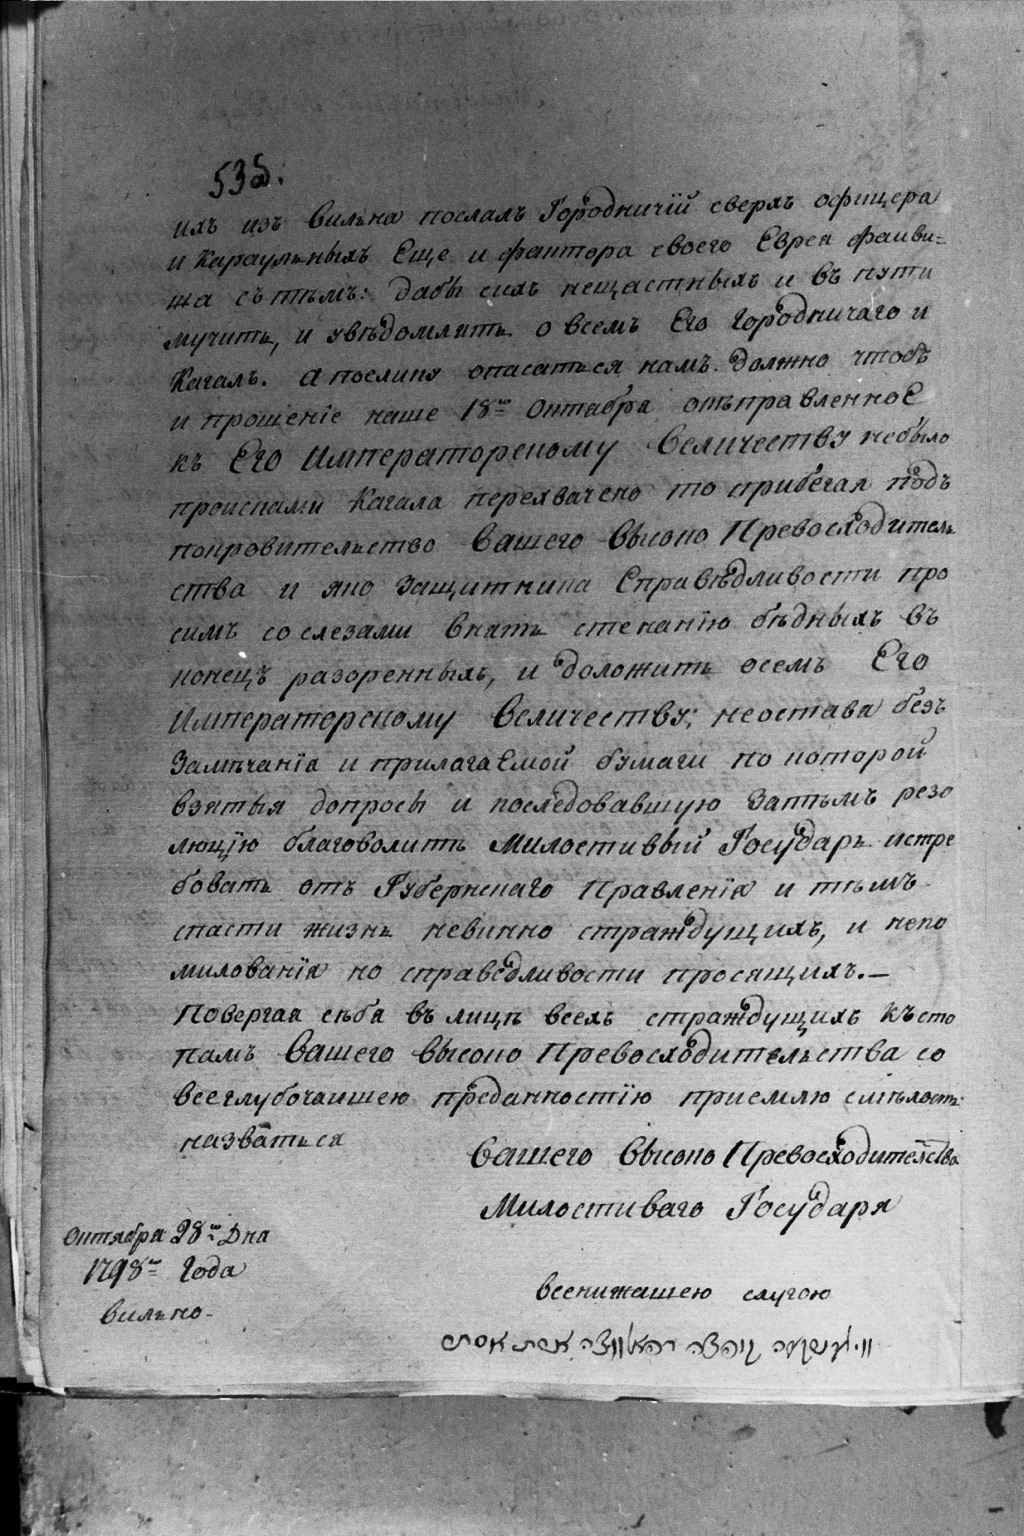 535.
ихъ изъ Вильна послалъ Городничїй сверхъ офицера
и Караульныхъ Еще и фактора своего Еврея Фаиви=
ша съ тѣмъ: дабы сихъ нещастныхъ и въ пути
мучить, и увѣдомлять о всемъ Его Городничаго и
Кагалъ. а поелику опасаться намъ должно чтобъ
и прошенїе наше 18го Октабра отъправленное
къ Его Императорскому Величеству небыло
происками Кагала перехвачено то прибегая подъ
покровительство Вашего Высоко Превосходитель
ства и яко Защитника Справѣдливости про
симъ со слезами внять стенанїю бѣдныхъ въ
конецъ разоренныхъ, и доложить осемъ Его
Императорскому Величеству; неостава безъ
Замѣчанїа и прилагаемой бумаги по которой
взятыя допросы и последовавшую Затѣмъ резо
люцїю благоволить Милостивый Государь истре
бовать отъ Губернскаго Правленїя и тѣмъ
спасти жизнь невинно страждущихъ, и непо
милованїя но справедливости просящихъ.—
Повергая себя въ лицѣ всехъ страждущихъ къ сто
памъ Вашего Высоко Превосходительства со
всеглубочаишею преданностїю приемлю смѣлость
назваться
Вашего Высоко Превосходительства
Милостиваго Государя
Октября 28го Дна
1798го Года
Вильно.
всенижашею слугою